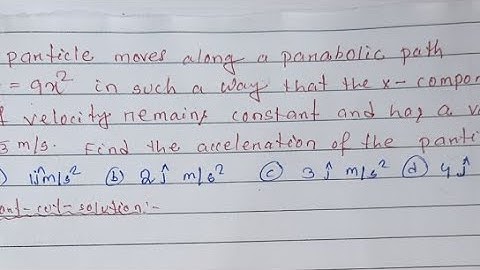 particle moves along a parabolic path
= 9x² in such a way that the x- compon
f velocity remains constant and has a v
m/s. Find the acceleration of the parti
) 1ĵ m/s² (b) 2ĵ m/s² (c) 3ĵ m/s² (d) 4ĵ
solution:-